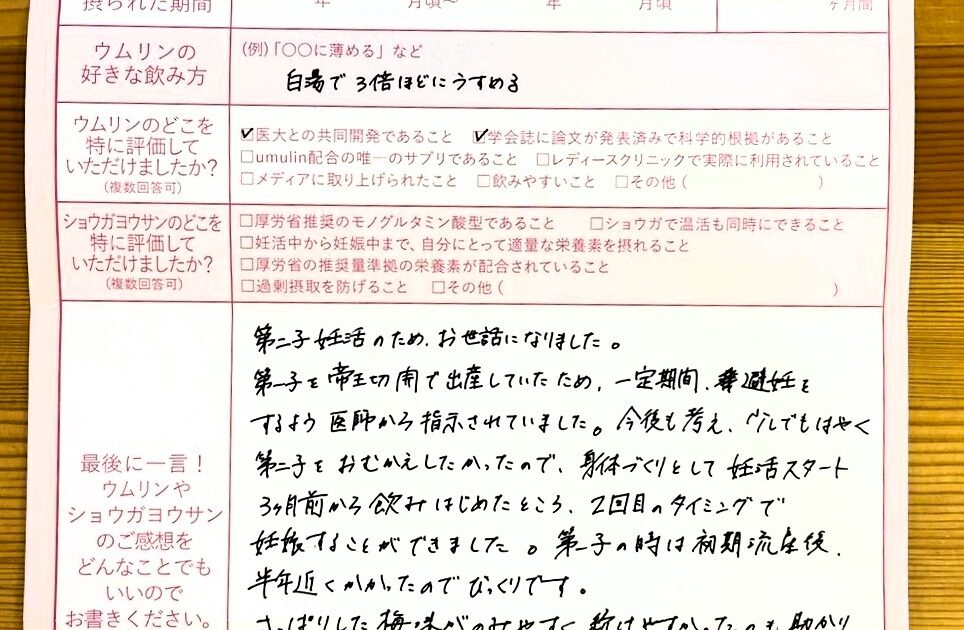 摂られた期間　年　月頃〜　年　月頃　ヶ月間
ウムリンの
好きな飲み方
(例)「〇〇に薄める」など
白湯で3倍ほどにうすめる
ウムリンのどこを
特に評価して
いただけましたか?
(複数回答可)
☑医大との共同開発であること　☑学会誌に論文が発表済みで科学的根拠があること
□umulin配合の唯一のサプリであること　□レディースクリニックで実際に利用されていること
□メディアに取り上げられたこと　□飲みやすいこと　□その他 (　)
ショウガヨウサンのどこを
特に評価して
いただけましたか?
(複数回答可)
□厚労省推奨のモノグルタミン酸型であること　□ショウガで温活も同時にできること
□妊活中から妊娠中まで、自分にとって適量な栄養素を摂れること
□厚労省の推奨量準拠の栄養素が配合されていること
□過剰摂取を防げること　□その他 (　)
最後に一言!
ウムリンや
ショウガヨウサン
のご感想を
どんなことでも
いいので
お書きください。
第二子妊活のため、お世話になりました。
第一子を帝王切開で出産していたため、一定期間、避妊を
するよう医師から指示されていました。今後も考え、少しでもはやく
第二子をおむかえしたかったので、身体づくりとして妊活スタート
3ヶ月前から飲みはじめたところ、2回目のタイミングで
妊娠することができました。第一子の時は初期流産後、
半年近くかかったのでびっくりです。
さっぱりした梅味がのみやすく、続けやすかったのも助かり